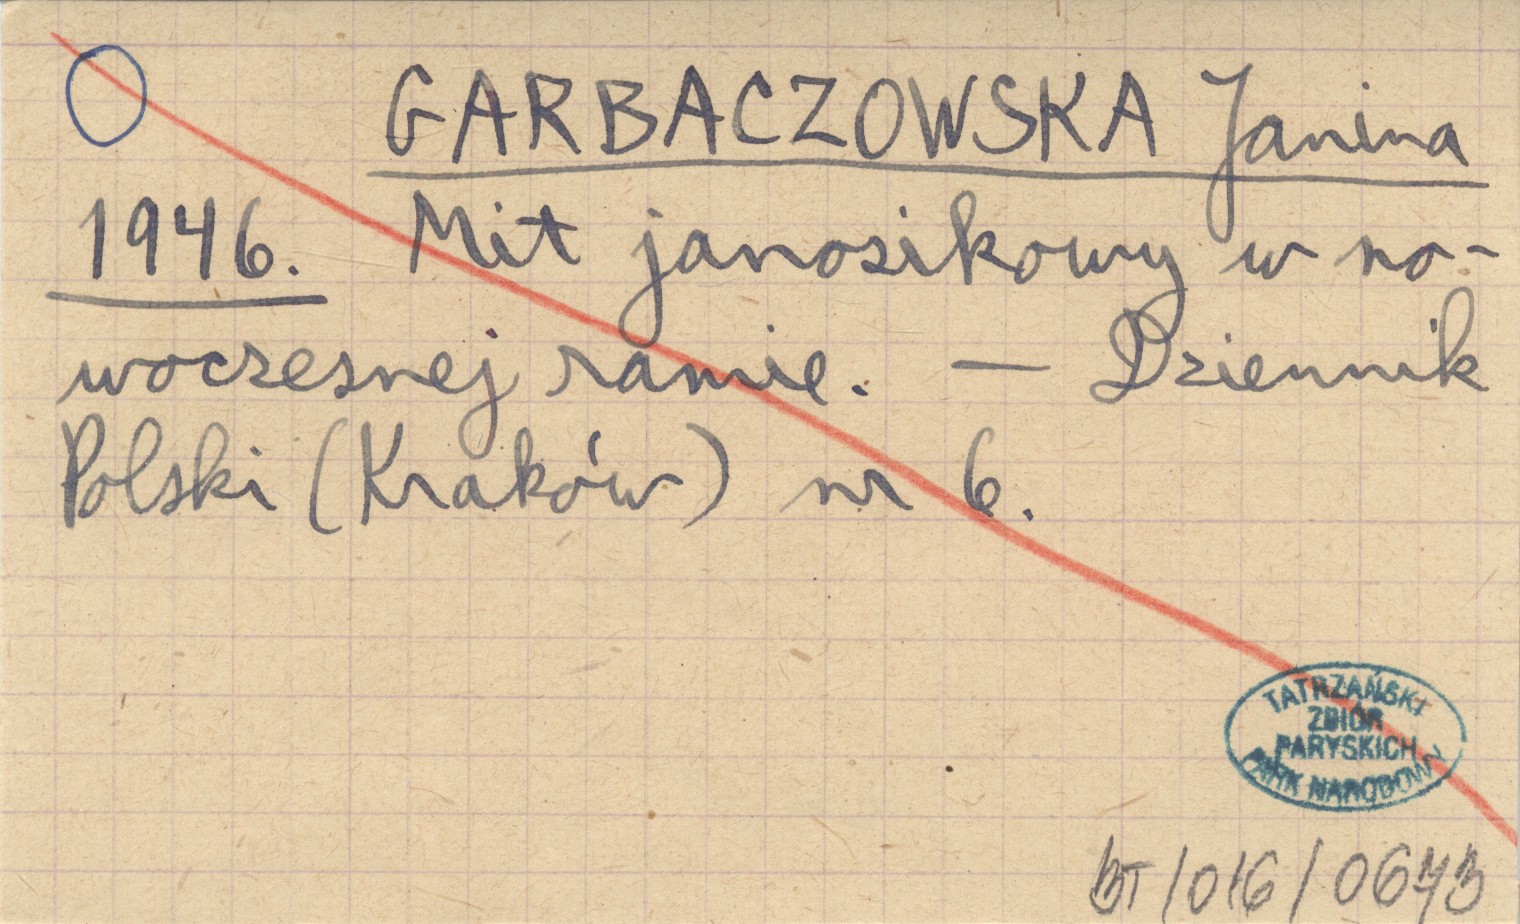 GARBACZOWSKA Janina
1946. Mit janosikowy w no-
woczesnej ramie. — Dziennik
Polski (Kraków) nr 6.
TATRZAŃSKI
ZBIÓR
PARYSKICH
PARK NARODOWY
BT/016/0643